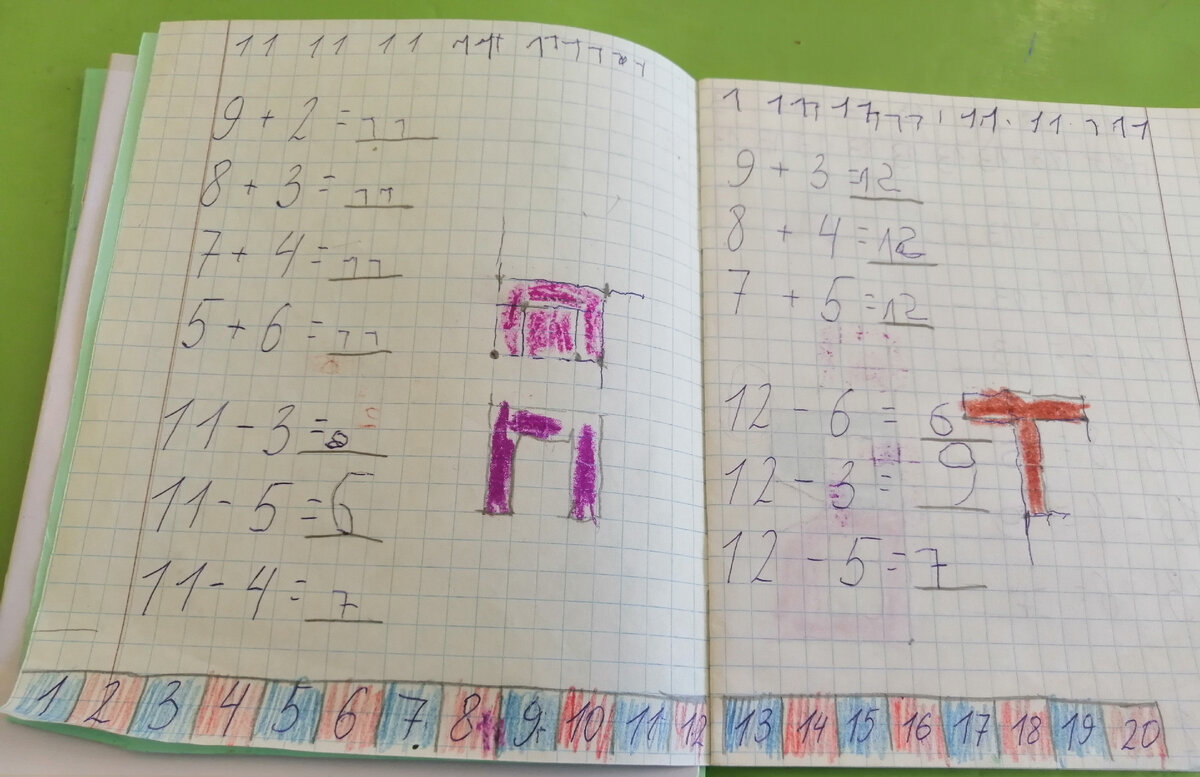 11 11 11
9 + 2 = 11
8 + 3 = 11
7 + 4 = 11
5 + 6 = 11
11 - 3 = 8
11 - 5 = 6
11 - 4 = 7
П
1 2 3 4 5 6 7 8 9 10 11 12
9 + 3 = 12
8 + 4 = 12
7 + 5 = 12
12 - 6 = 6
12 - 3 = 9
12 - 5 = 7
Т
13 14 15 16 17 18 19 20